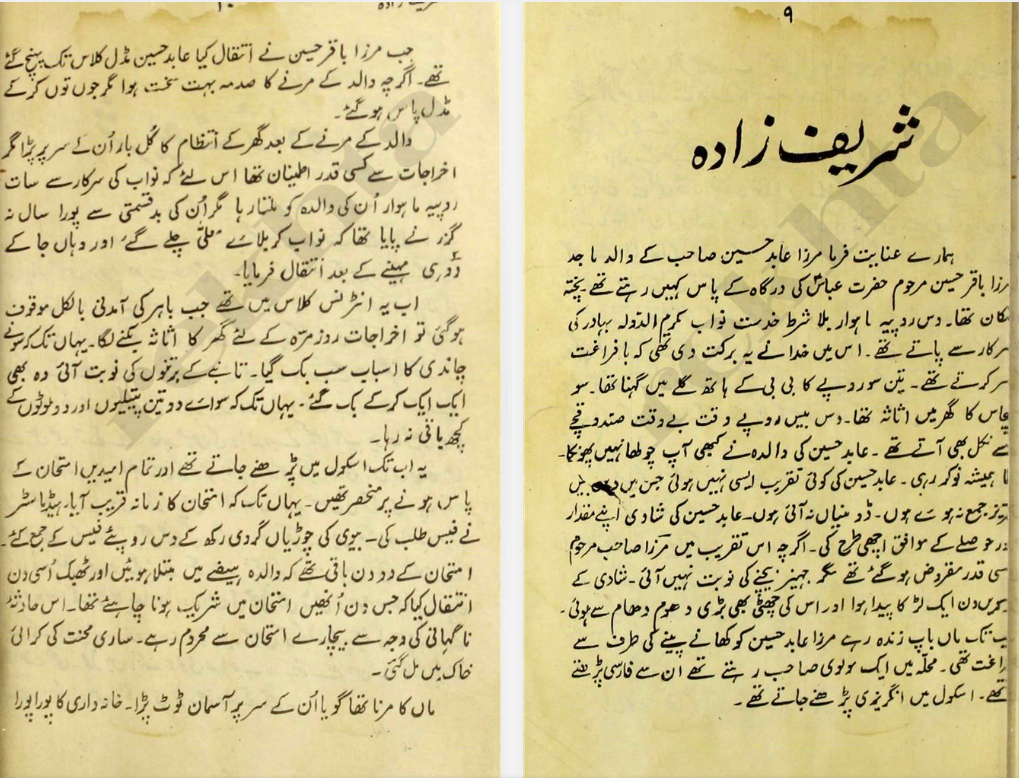 ۹
شریف زادہ
ہمارے عنایت فرما مرزا عابد حسین صاحب کے والد ماجد
مرزا باقر حسین مرحوم حضرت عباسؑ کی درگاہ کے پاس کہیں رہتے تھے پختہ
مکان تھا۔ دس روپیہ ماہوار بلا شرط خدمت نواب مکرم الدولہ بہادر کی
سرکار سے پاتے تھے۔ اس میں خدا نے یہ برکت دی تھی کہ بافراغت
بسر کرتے تھے۔ تین سو روپے کا بی بی کے ہاتھ گلے میں گہنا تھا۔ سو
پچاس کا گھر میں اثاثہ تھا۔ دس بیس روپے وقت بے وقت صندوقچے
سے نکل بھی آتے تھے۔ عابد حسین کی والدہ نے کبھی آپ چولھا نہیں پھونکا۔
ماما ہمیشہ نوکر رہی۔ عابد حسین کی کوئی تقریب ایسی نہیں ہوئی جس میں دس بیس
عزیز جمع نہ ہوئے ہوں۔ ڈومنیاں نہ آئی ہوں۔ عابد حسین کی شادی اپنے مقدار
اور حوصلے کے موافق اچھی طرح کی۔ اگرچہ اس تقریب میں مرزا صاحب مرحوم
کسی قدر مقروض ہو گئے تھے مگر جہیز بیچنے کی نوبت نہیں آئی۔ شادی کے
دن ایک لڑکا پیدا ہوا اور اس کی چھٹی بھی بڑی دھوم دھام سے ہوئی۔
جب تک ماں باپ زندہ رہے مرزا عابد حسین کو کھانے پینے کی طرف سے
فراغت تھی۔ محلہ میں ایک مولوی صاحب رہتے تھے ان سے فارسی پڑھتے
تھے۔ اسکول میں انگریزی پڑھنے جاتے تھے۔
شریف زادہ
۱۰
جب مرزا باقر حسین نے انتقال کیا عابد حسین مڈل کلاس تک پہنچ گئے
تھے۔ اگرچہ والد کے مرنے کا صدمہ بہت سخت ہوا مگر جوں توں کر کے
مڈل پاس ہو گئے۔
والد کے مرنے کے بعد گھر کے انتظام کا کُل بار اُن کے سر پر پڑا مگر
اخراجات سے کسی قدر اطمینان تھا اس لئے کہ نواب کی سرکار سے سات
روپیہ ماہوار اُن کی والدہ کو ملتا رہا مگر اُن کی بدقسمتی سے پورا سال نہ
گزرنے پایا تھا کہ نواب کربلائے معلیٰ چلے گئے اور وہاں جا کے
دو ہی مہینے کے بعد انتقال فرمایا۔
اب یہ انٹرنس کلاس میں تھے جب باہر کی آمدنی بالکل موقوف
ہو گئی تو اخراجات روز مرّہ کے لئے گھر کا اثاثہ بکنے لگا۔ یہاں تک کہ سونے
چاندی کا اسباب سب بک گیا۔ تانبے کے برتنوں کی نوبت آئی وہ بھی
ایک ایک کر کے بک گئے۔ یہاں تک کہ سوائے دو تین پتیلیوں اور دو لوٹوں کے
کچھ باقی نہ رہا۔
یہ اب تک اسکول میں پڑھنے جاتے تھے اور تمام امیدیں امتحان کے
پاس ہونے پر منحصر تھیں۔ یہاں تک کہ امتحان کا زمانہ قریب آیا۔ ہیڈ ماسٹر
نے فیس طلب کی۔ بیوی کی چوڑیاں گروی رکھ کے دس روپئے فیس کے جمع کئے۔
امتحان کے دو دن باقی تھے کہ والدہ ہیضے میں مبتلا ہوئیں اور ٹھیک اُسی دن
انتقال کیا کہ جس دن اُنھیں امتحان میں شریک ہونا چاہئے تھا۔ اس حادثۂ
ناگہانی کی وجہ سے بیچارے امتحان سے محروم رہے۔ ساری محنت کی کرائی
خاک میں مل گئی۔
ماں کا مرنا تھا گویا اُن کے سر پر آسمان ٹوٹ پڑا۔ خانہ داری کا پورا پورا